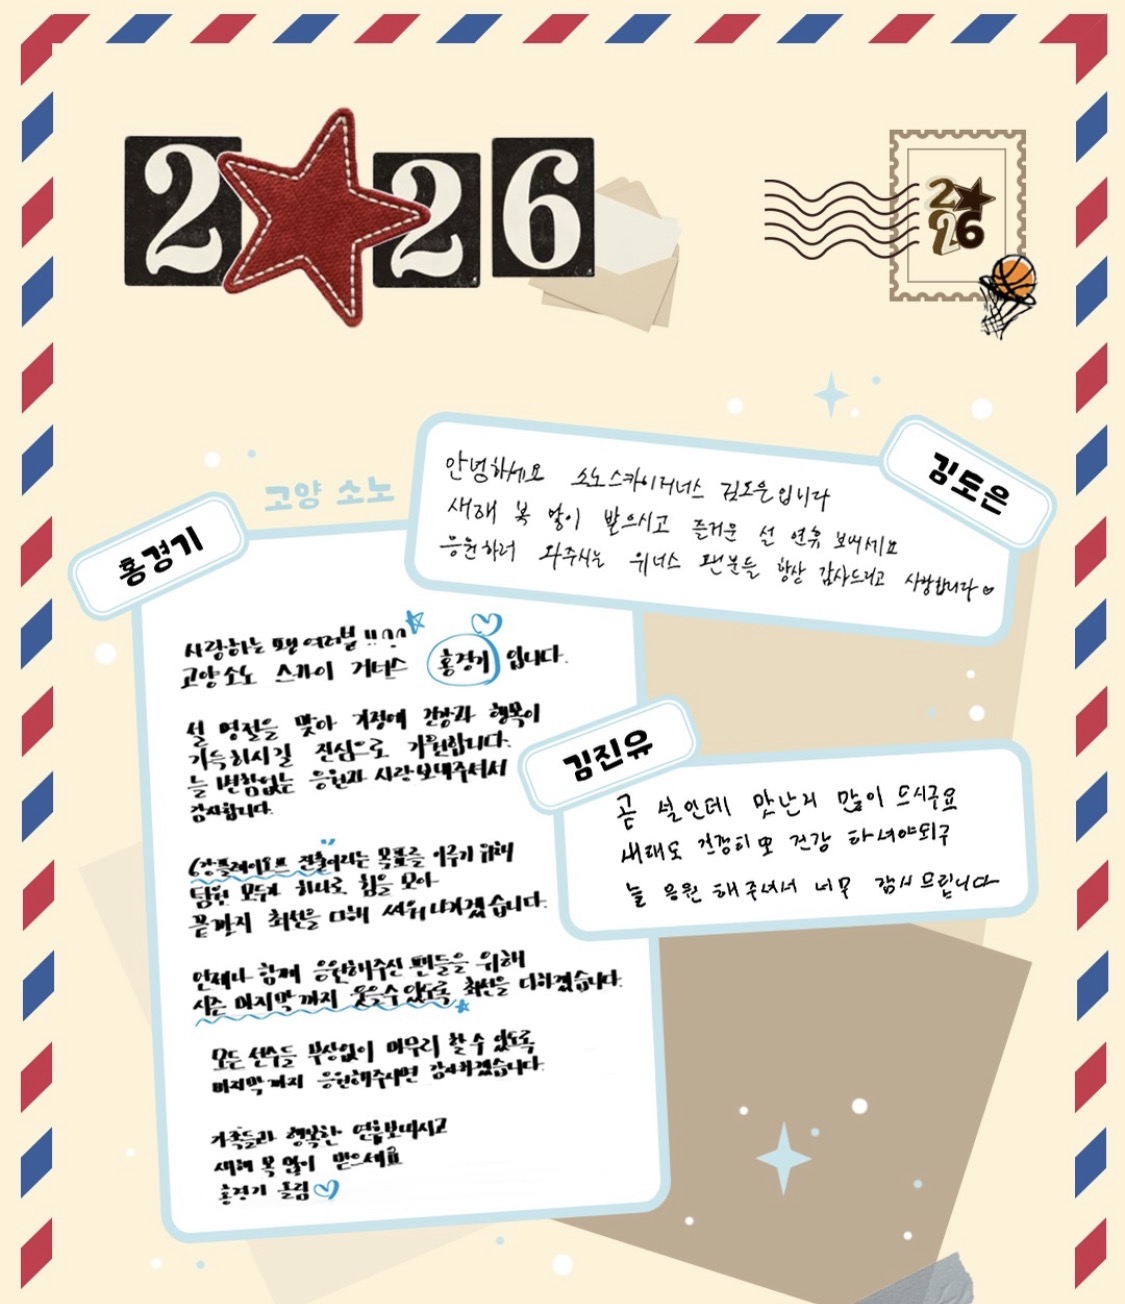 2026
2026
고양 소노
김도은
안녕하세요 소노스카이거너스 김도은입니다
새해 복 많이 받으시고 즐거운 설 연휴 보내세요
응원하러 와주시는 위너스 팬분들 항상 감사드리고 사랑합니다♡
홍경기
사랑하는 팬 여러분!!
고양소노 스카이 거너스 홍경기 입니다.
설 명절을 맞아 가정에 건강과 행복이
가득하시길 진심으로 기원합니다.
늘 변함없는 응원과 사랑 보내주셔서
감사합니다.
6강플레이오프 진출이라는 목표를 이루기 위해
팀원 모두가 하나로 힘을 모아
끝까지 최선을 다해 싸워 나가겠습니다.
언제나 함께 응원해주신 팬들을 위해
시즌 마지막까지 웃을수있도록 최선을 다하겠습니다.
모든 선수들 부상없이 마무리 할 수 있도록
마지막까지 응원해주시면 감사하겠습니다.
가족들과 행복한 연휴보내시고
새해 복 많이 받으세요
홍경기 올림♡
김진유
곧 설인데 맛난거 많이 드시구요
새해도 건강히 또 건강 하셔야되구
늘 응원 해주셔서 너무 감사드립니다